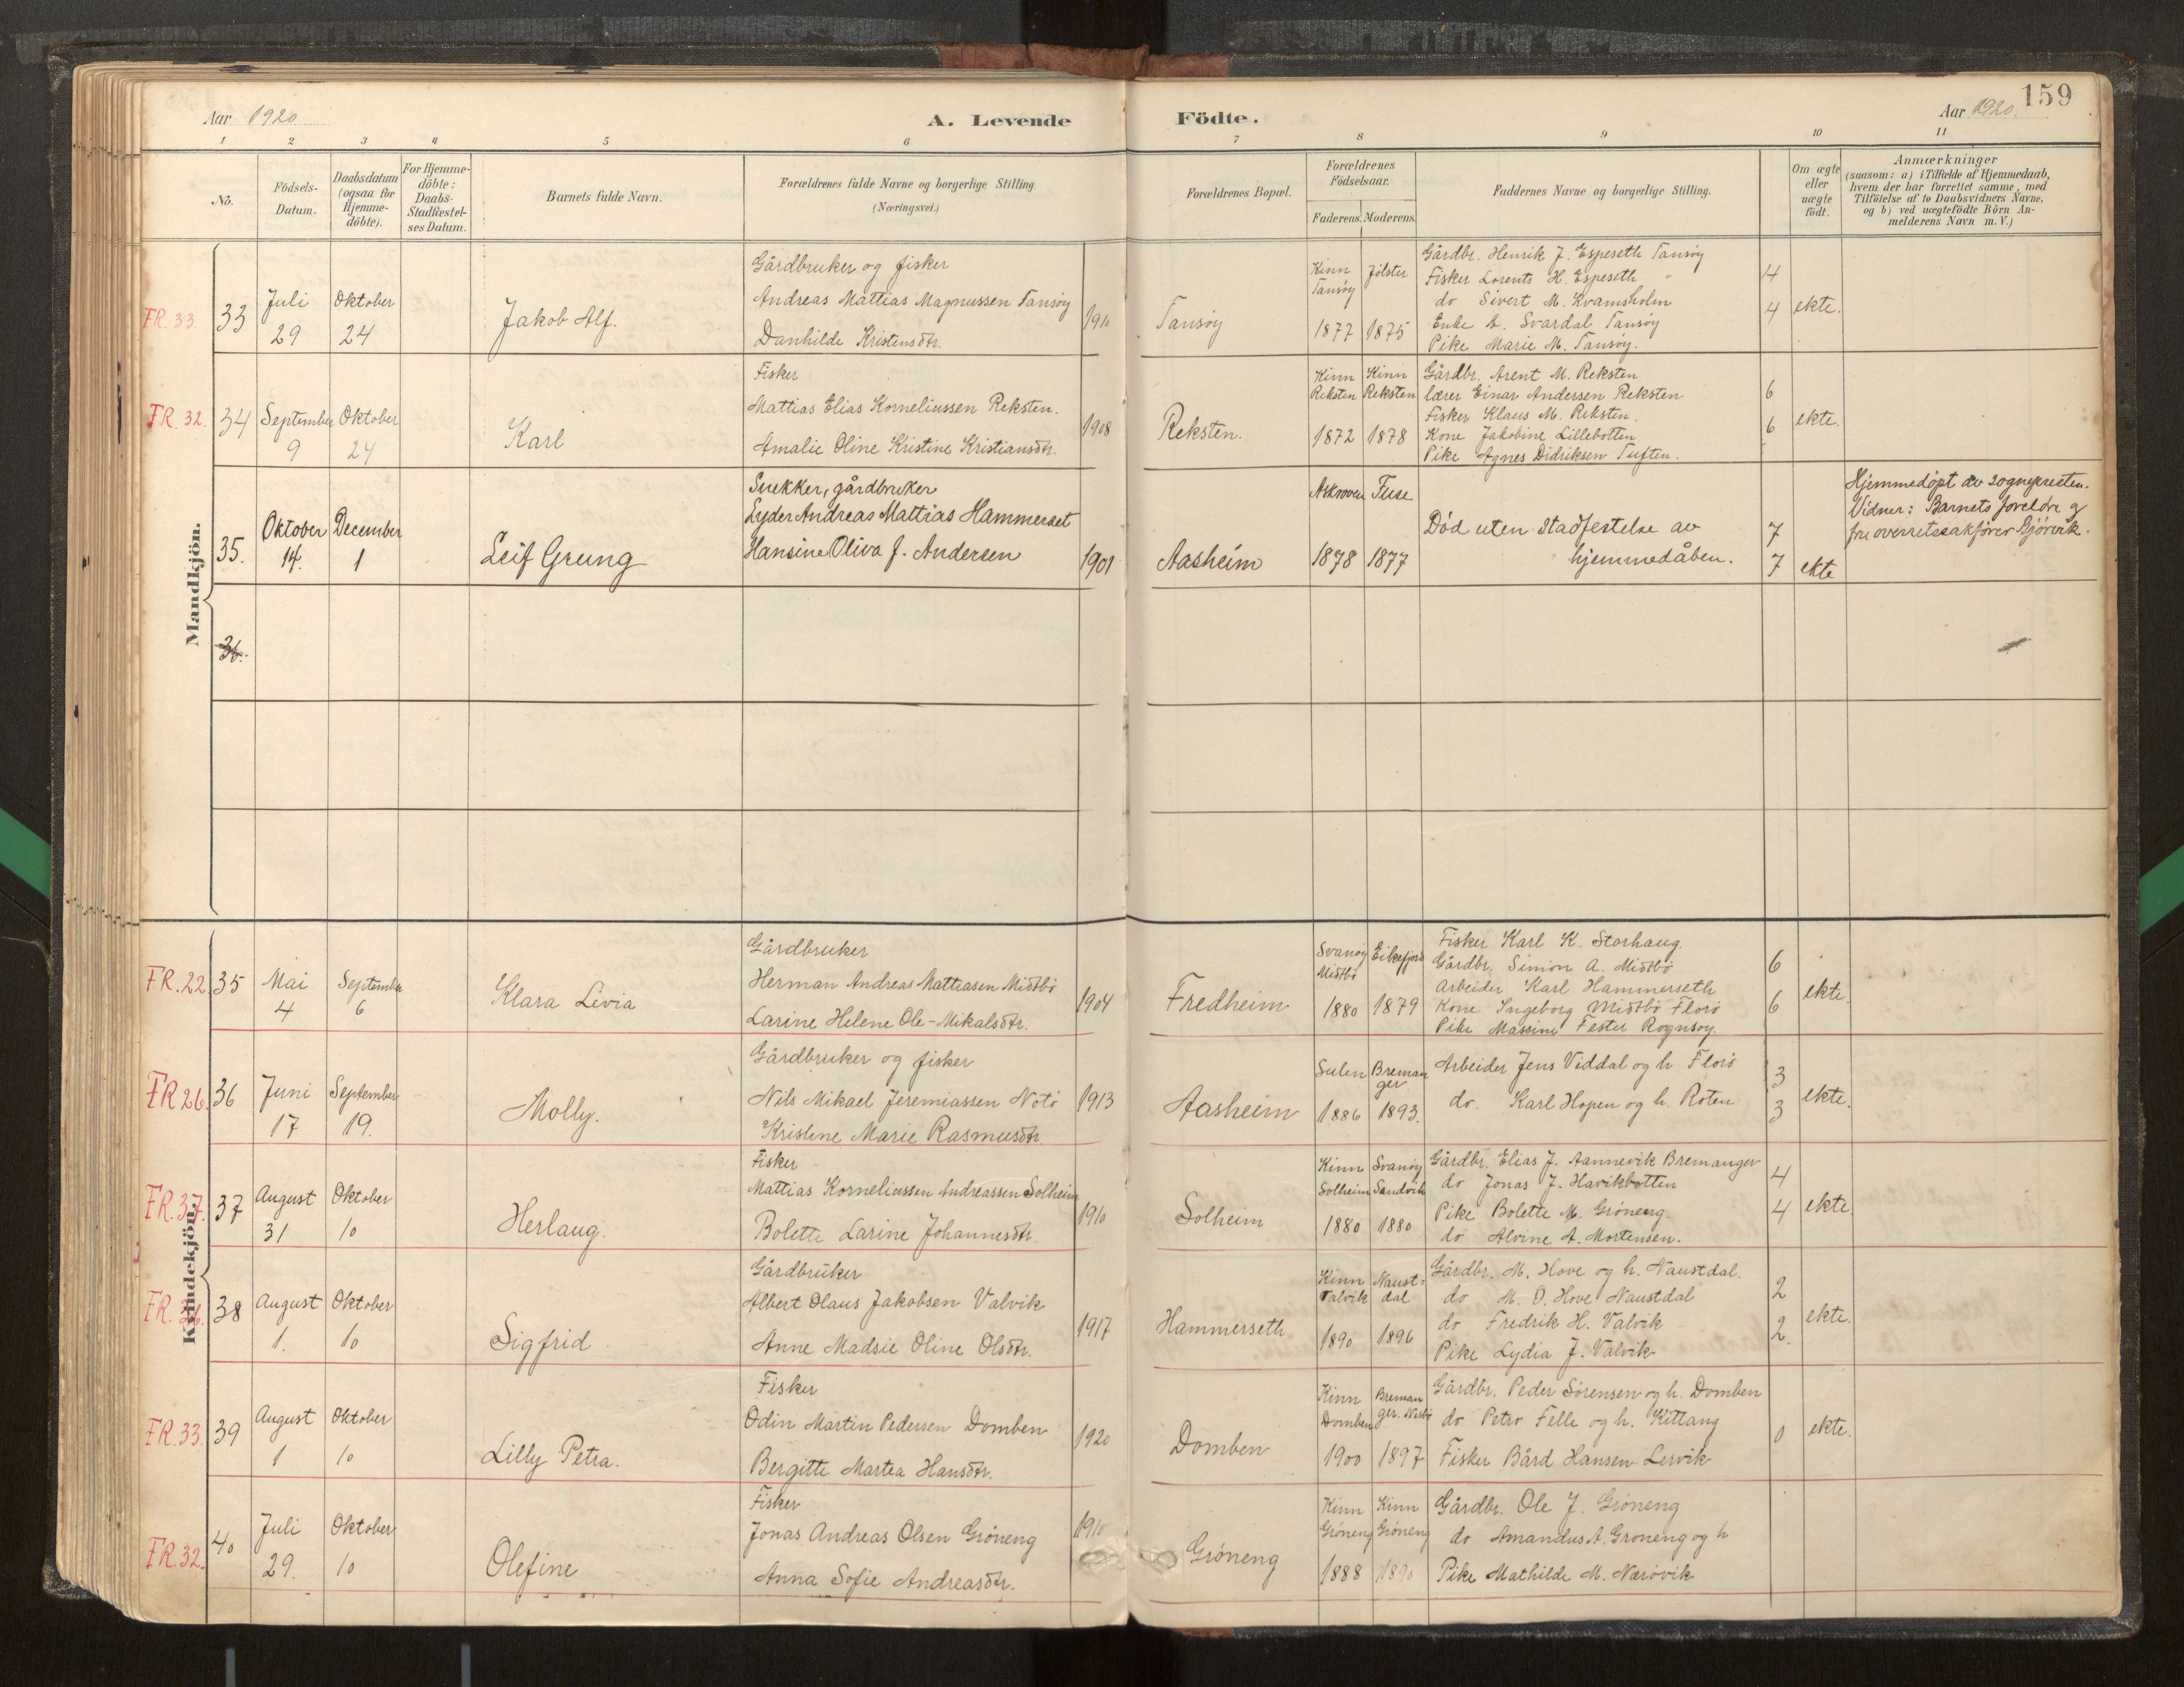 159
Aar 1920
A. Levende Födte.
Aar 1920.
1 2 3 4 5 6 7 8 9 10 11
No.
Födsels-
Datum.
Daabsdatum
(ogsaa for
Hjemme-
döbte).
For Hjemme-
döbte:
Daabs-
Stadfæstel-
ses Datum.
Barnets fulde Navn.
Forældrenes fulde Navne og borgerlige Stilling.
(Næringsvei.)
Forældrenes Bopæl.
Forældrenes
Födselsaar.
Faderens. Moderens.
Faddernes Navne og borgerlige Stilling.
Om ægte
eller
uægte
födt.
Anmærkninger
(saasom: a) i Tilfælde af Hjemmedaab,
hvem der har forrettet samme, med
Tilföielse af to Daabsvidners Navne,
og b) ved uægtefödte Börn An-
melderens Navn m. V.)
Mandkjön.
FR. 33.
33
Juli
29
Oktober
24
Jakob Alf.
Gårdbruker og fisker
Andreas Mattias Magnussen Tansöy
Danhilde Kristensdtr.
1910
Tansöy
Kinn
Tansöy
1872
Jölster
1875
Gårdbr. Henrik J. Espeseth Tansöy
Fisker Lorents H. Espeseth "
do Sivert M. Kvamsholm
Enke B. Svardal Tansöy
Pike Marie M. Tansöy.
4
4
ekte.
FR. 32.
34
September
9
Oktober
24
Karl
Fisker
Mattias Elias Korneliussen Reksten.
Amalie Oline Kristine Kristiansdtr.
1908
Reksten.
Kinn
Reksten
1872
Kinn
Reksten
1878
Gårdbr. Arent M. Reksten
lærer Einar Andersen Reksten
Fisker Klaus M. Reksten.
Kone Jakobine Lillebotten
Pike Agnes Didriksen Tuften.
6
6
ekte.
35.
Oktober
14.
December
1
Leif Grung
Snekker, gårdbruker
Lyder Andreas Mattias Hammerset
Hansine Oliva J. Andersen
1901
Aasheim
Askroven
1878
Fuse
1877
Död uten stadfestelse av
hjemmedåben.
7
7
ekte
Hjemmedöpt av sognepresten.
Vidner: Barnets foreldre og
fru overretssakförer Gjörvik.
36.
Kvindekjön.
FR. 22.
35
Mai
4
September
6
Klara Livia
Gårdbruker
Herman Andreas Mattiasen Midtbö
Larine Helene Ole-Mikalsdtr.
1904
Fredheim
Svanöy
Midtbö
1880
Eikefjord
1879
Fisker Karl K. Storhaug.
Gårdbr. Simon A. Midtbö
Arbeider Karl Hammerseth
Kone Ingeborg Midtbö Florö
Pike Massine Fester Rognsöy.
6
6
ekte.
FR 26.
36
Juni
17
September
19.
Molly.
Gårdbruker og fisker
Nils Mikael Jeremiassen Notö
Kristine Marie Rasmusdtr.
1913
Aasheim
Sulen
1886
Breman
ger
1893.
Arbeider Jens Viddal og h Florö
do. Karl Hopen og h. Roten
3
3
ekte.
FR. 37.
37
August
31
Oktober
10
Herlaug.
Fisker
Mattias Korneliussen Andreassen Solheim
Bolette Larine Johannesdtr.
1910
Solheim
Kinn
Solheim
1880
Svanöy
Sandvik
1880
Gårdbr. Elias J. Aannevik Bremanger
do Jonas J. Havikbotten
Pike Bolette M. Gröneng.
do Alvine A. Mortensen.
4
4
ekte.
FR. 36.
38
August
1.
Oktober
10
Sigfrid
Gårdbruker
Albert Olaus Jakobsen Valvik
Anne Madsie Oline Olsdtr.
1917
Hammerseth
Kinn
Valvik
1890
Naust-
dal
1896
Gårdbr. M. Hove og h. Naustdal.
do M. O. Hove Naustdal
do Fredrik H. Valvik
Pike Lydia J. Valvik
2
2.
ekte.
FR. 33.
39
August
1
Oktober
10
Lilly Petra.
Fisker
Odin Martin Pedersen Domben
Bergitte Martea Hansdtr.
1920
Domben
Kinn
Domben
1900
Breman
ger.
1897
Gårdbr. Peder Sörensen og h. Domben
do Petro Felle og h. Kittang
Fisker Bård Hansen Lervik
0
ekte.
FR. 32.
40
Juli
29.
Oktober
10
Olefine
Fisker
Jonas Andreas Olsen Gröneng
Anna Sofie Andreasdtr.
1910
Gröneng
Kinn
Gröneng
1888
Kinn
Gröneng
1890
Gårdbr. Ole J. Gröneng
do Amandus A. Groneng og h
Pike Mathilde M. Nærövik